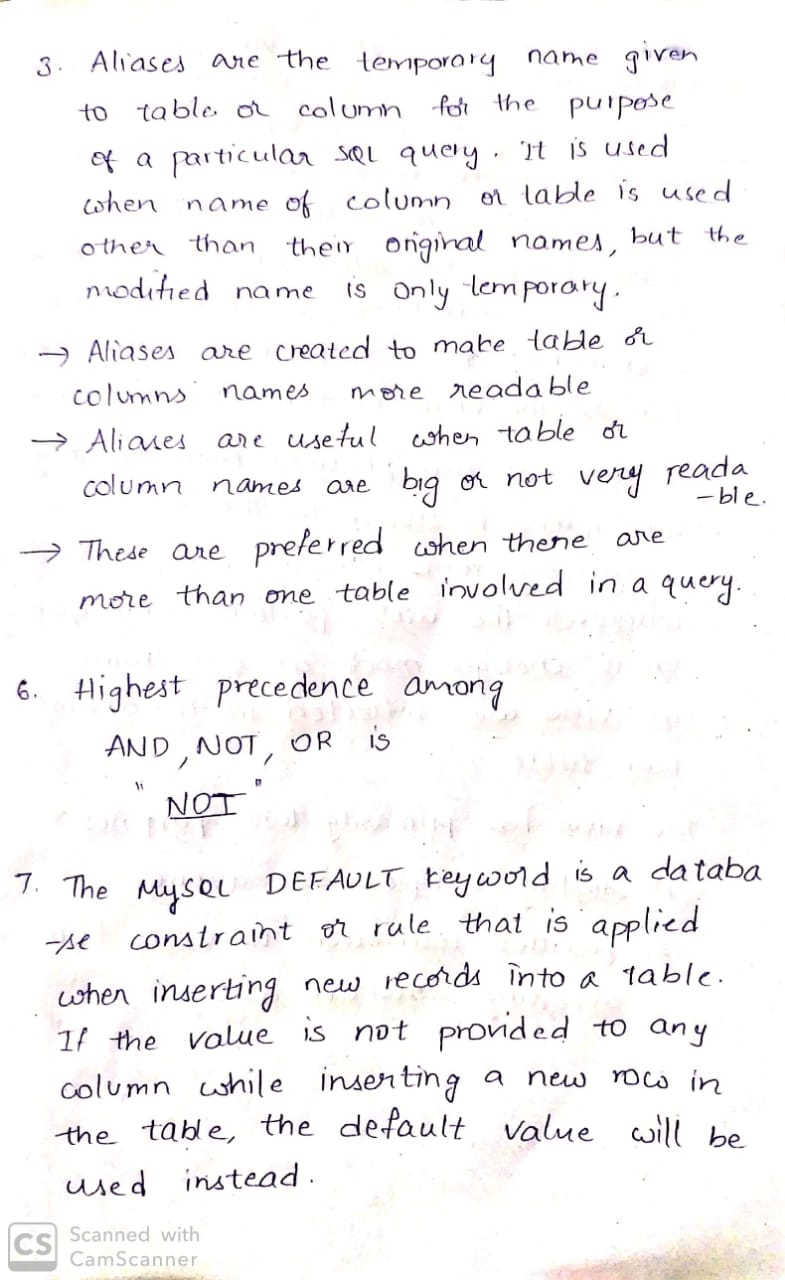 3. Aliases are the temporary name given
to table or column for the purpose
of a particular SQL query. It is used
when name of column or table is used
other than their original names, but the
modified name is only temporary.
→ Aliases are created to make table or
columns names more readable
→ Aliases are useful when table or
column names are big or not very reada
-ble.
→ These are preferred when there are
more than one table involved in a query.
6. Highest precedence among
AND, NOT, OR is
"NOT"
7. The MySQL DEFAULT keyword is a databa
-se constraint or rule that is applied
when inserting new records into a table.
If the value is not provided to any
column while inserting a new row in
the table, the default value will be
used instead.
CS Scanned with
CamScanner